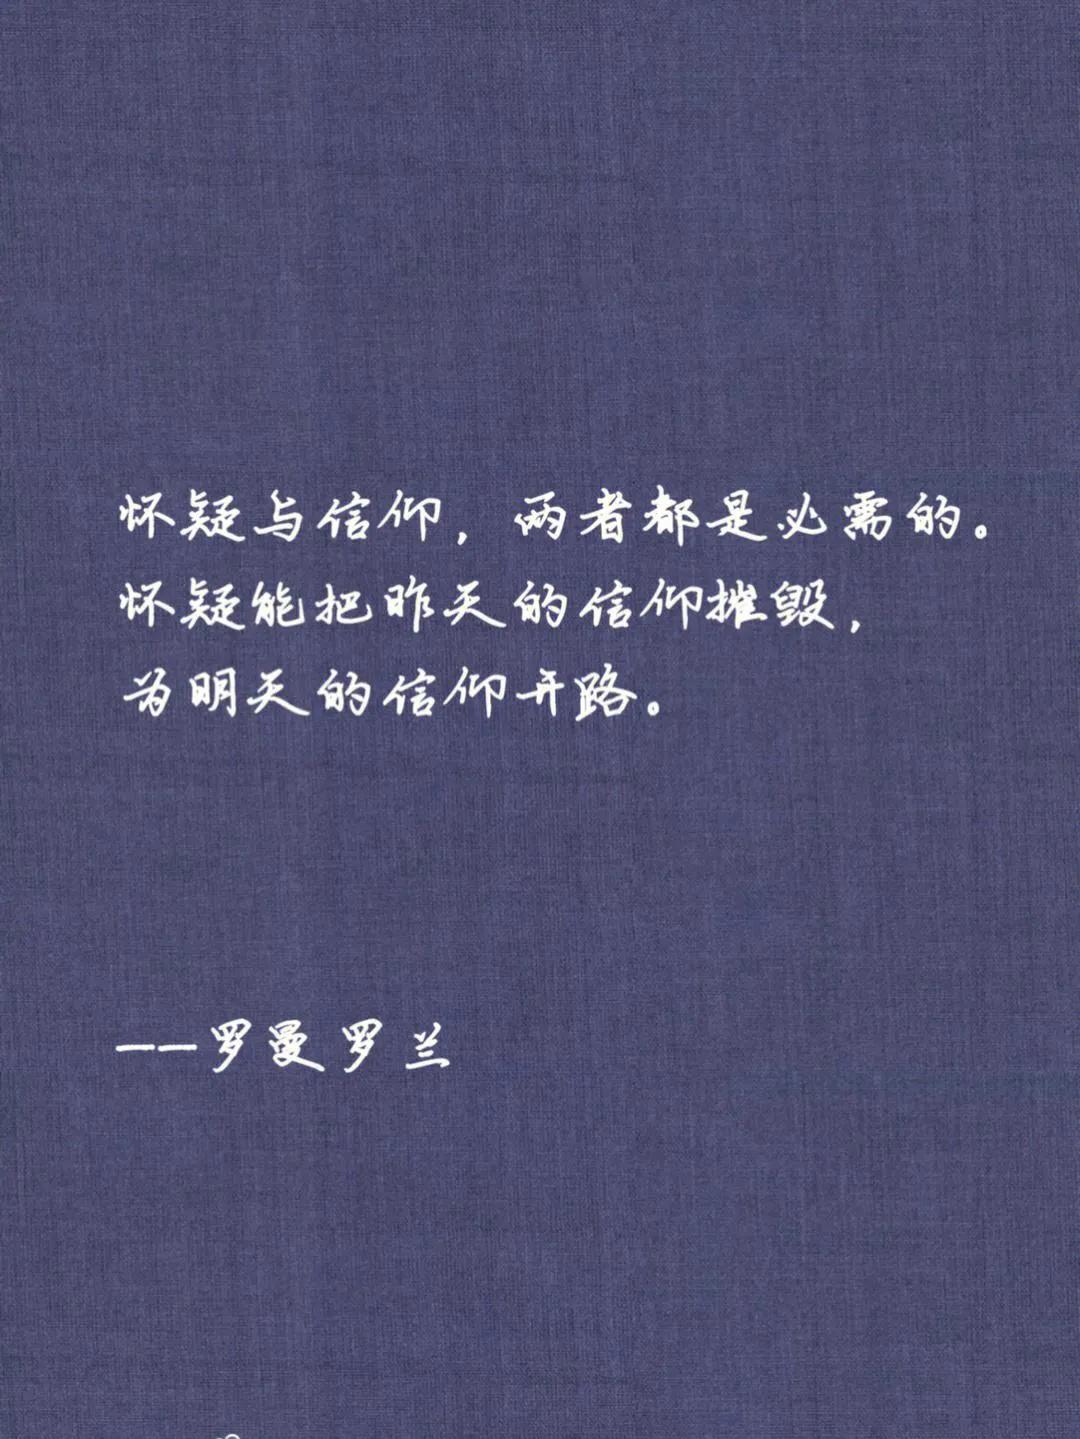 怀疑与信仰，两者都是必需的。
怀疑能把昨天的信仰摧毁，
为明天的信仰开路。
——罗曼罗兰